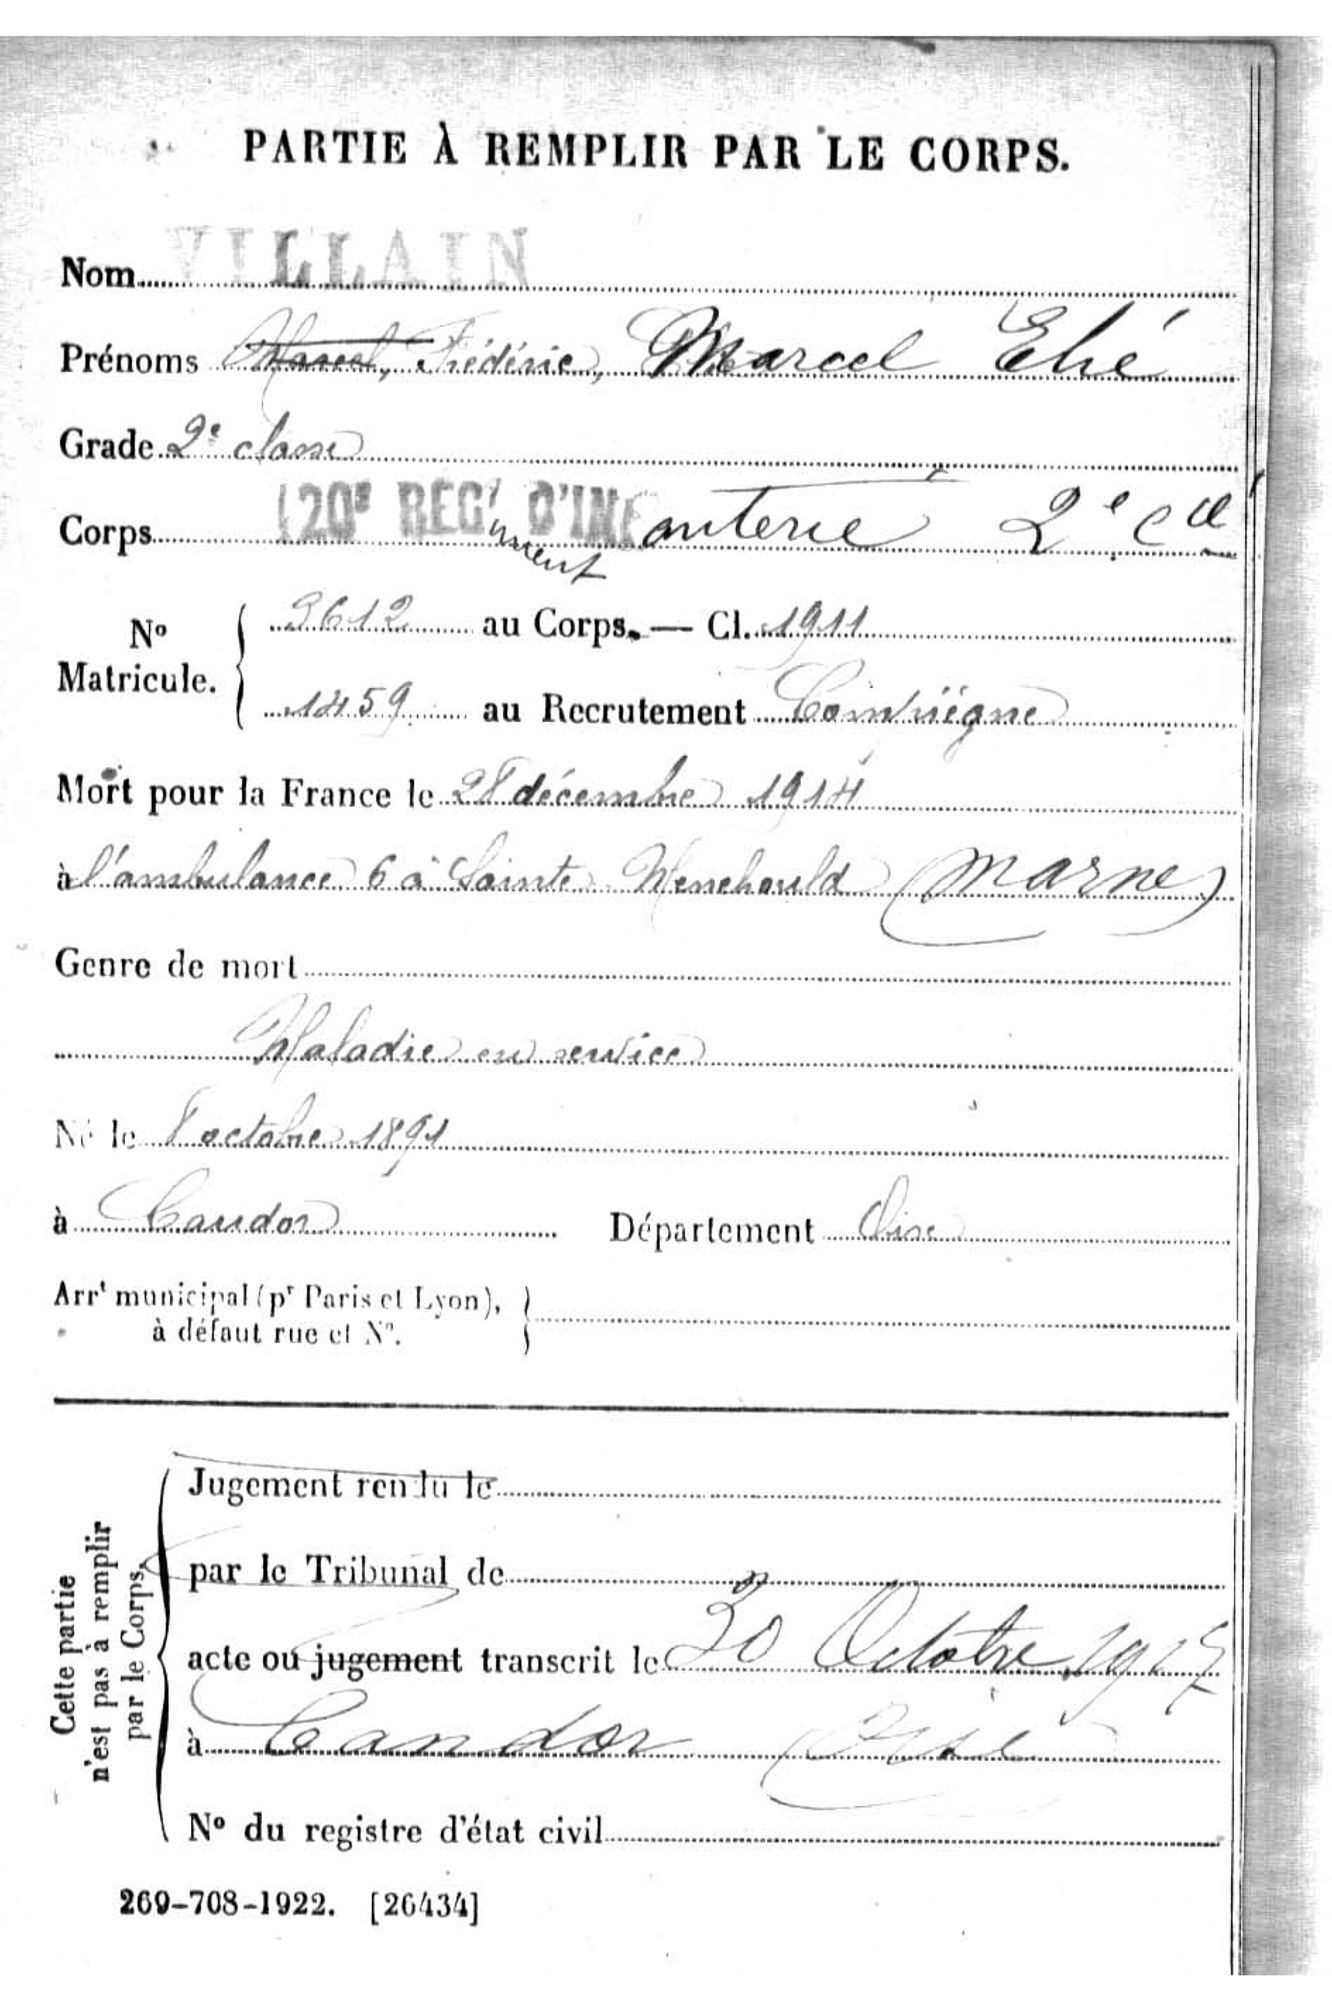 PARTIE À REMPLIR PAR LE CORPS.
Nom VILLAIN
Prénoms Marcel, Frédéric, Marcel Elié
Grade 2e classe
Corps 120E REGiment D'INFanterie 2e Cie
No Matricule. 3612 au Corps. — Cl. 1911
1459 au Recrutement Compiègne
Mort pour la France le 28 décembre 1914
à l'ambulance 6 à Sainte Menehould (Marne)
Genre de mort
Maladie en service
Né le 8 octobre 1891
à Candor Département Oise
Arrt municipal (pr Paris et Lyon),
à défaut rue et No.
Cette partie
n'est pas à remplir
par le Corps.
Jugement rendu le
par le Tribunal de
acte ou jugement transcrit le 30 Octobre 1917
à Candor Oise
No du registre d'état civil
269-708-1922. [26434]